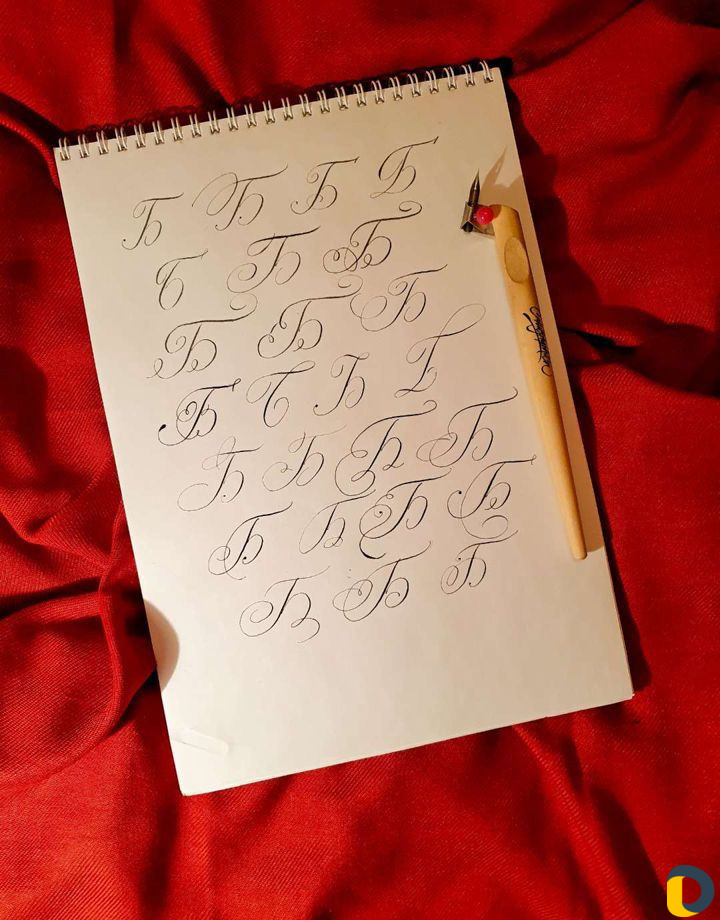 Б Б Б Б
Б Б Б
Б Б Б
Б Б Б Б
Б Б Б Б
Б Б Б Б
Б Б Б